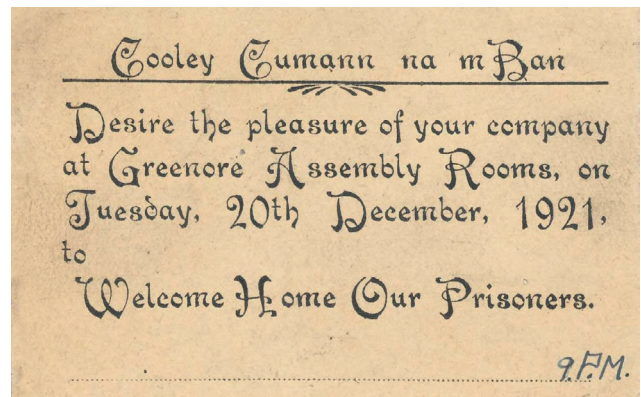 Cooley Cumann na mBan
Desire the pleasure of your company
at Greenore Assembly Rooms, on
Tuesday, 20th December, 1921,
to
Welcome Home Our Prisoners.
9.P.M.